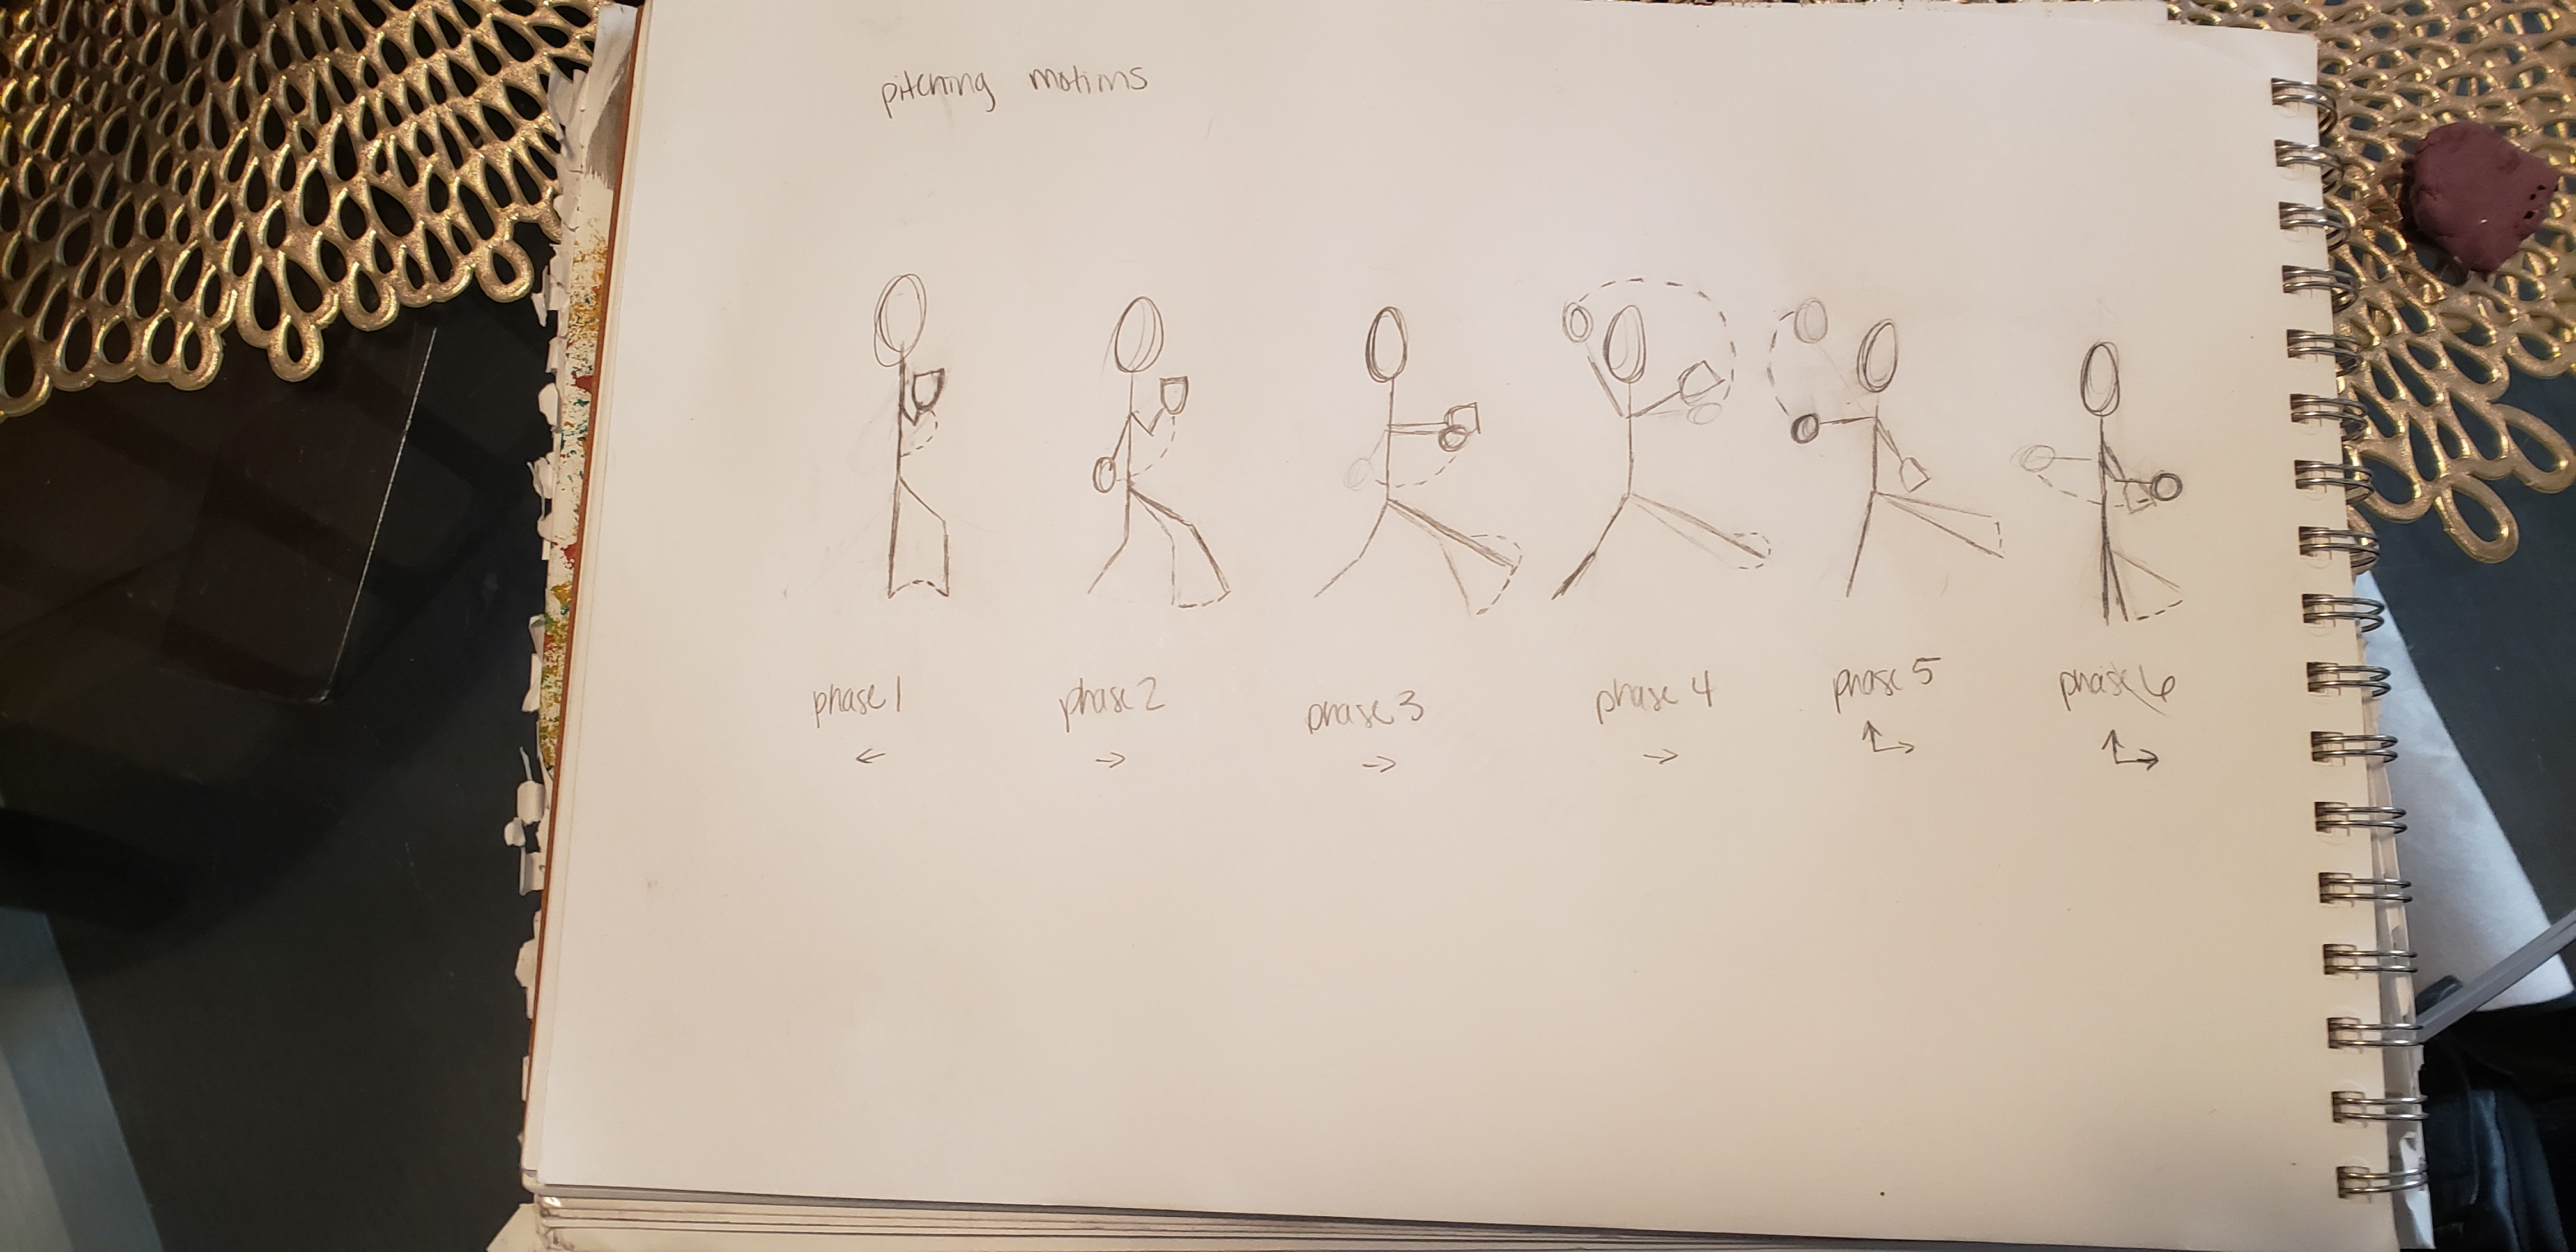 pitching motions
phase 1
phase 2
phase 3
phase 4
phase 5
phase 6